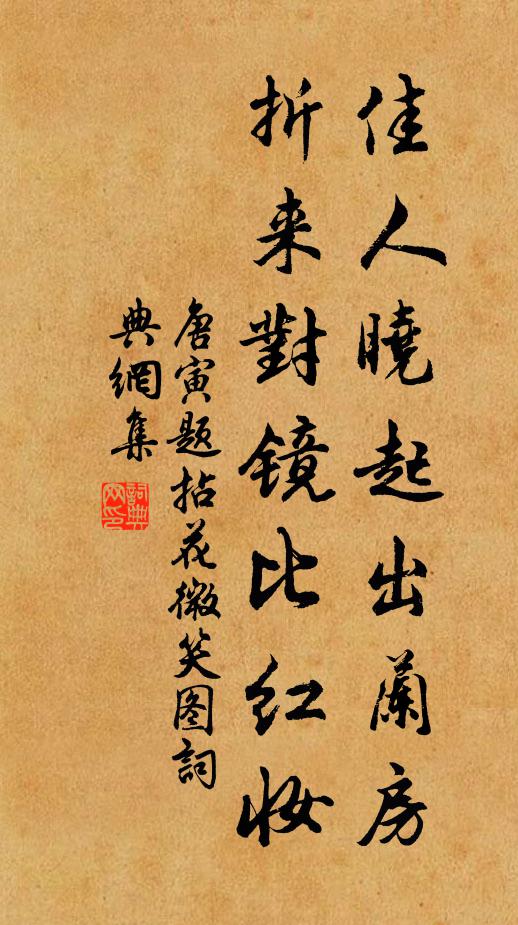 佳人曉起出蘭房
折来對镜比红妆
唐寅题拈花微笑图詞
典網集
詞典
网印